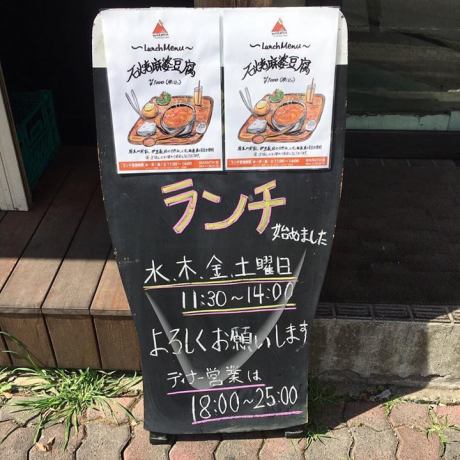 〜Lunch Menu〜
石焼麻婆豆腐
¥1000(税込)
〜Lunch Menu〜
石焼麻婆豆腐
¥1000(税込)
ランチ
始めました
水、木、金、土曜日
11:30〜14:00
よろしくお願いします
ディナー営業は
18:00〜25:00